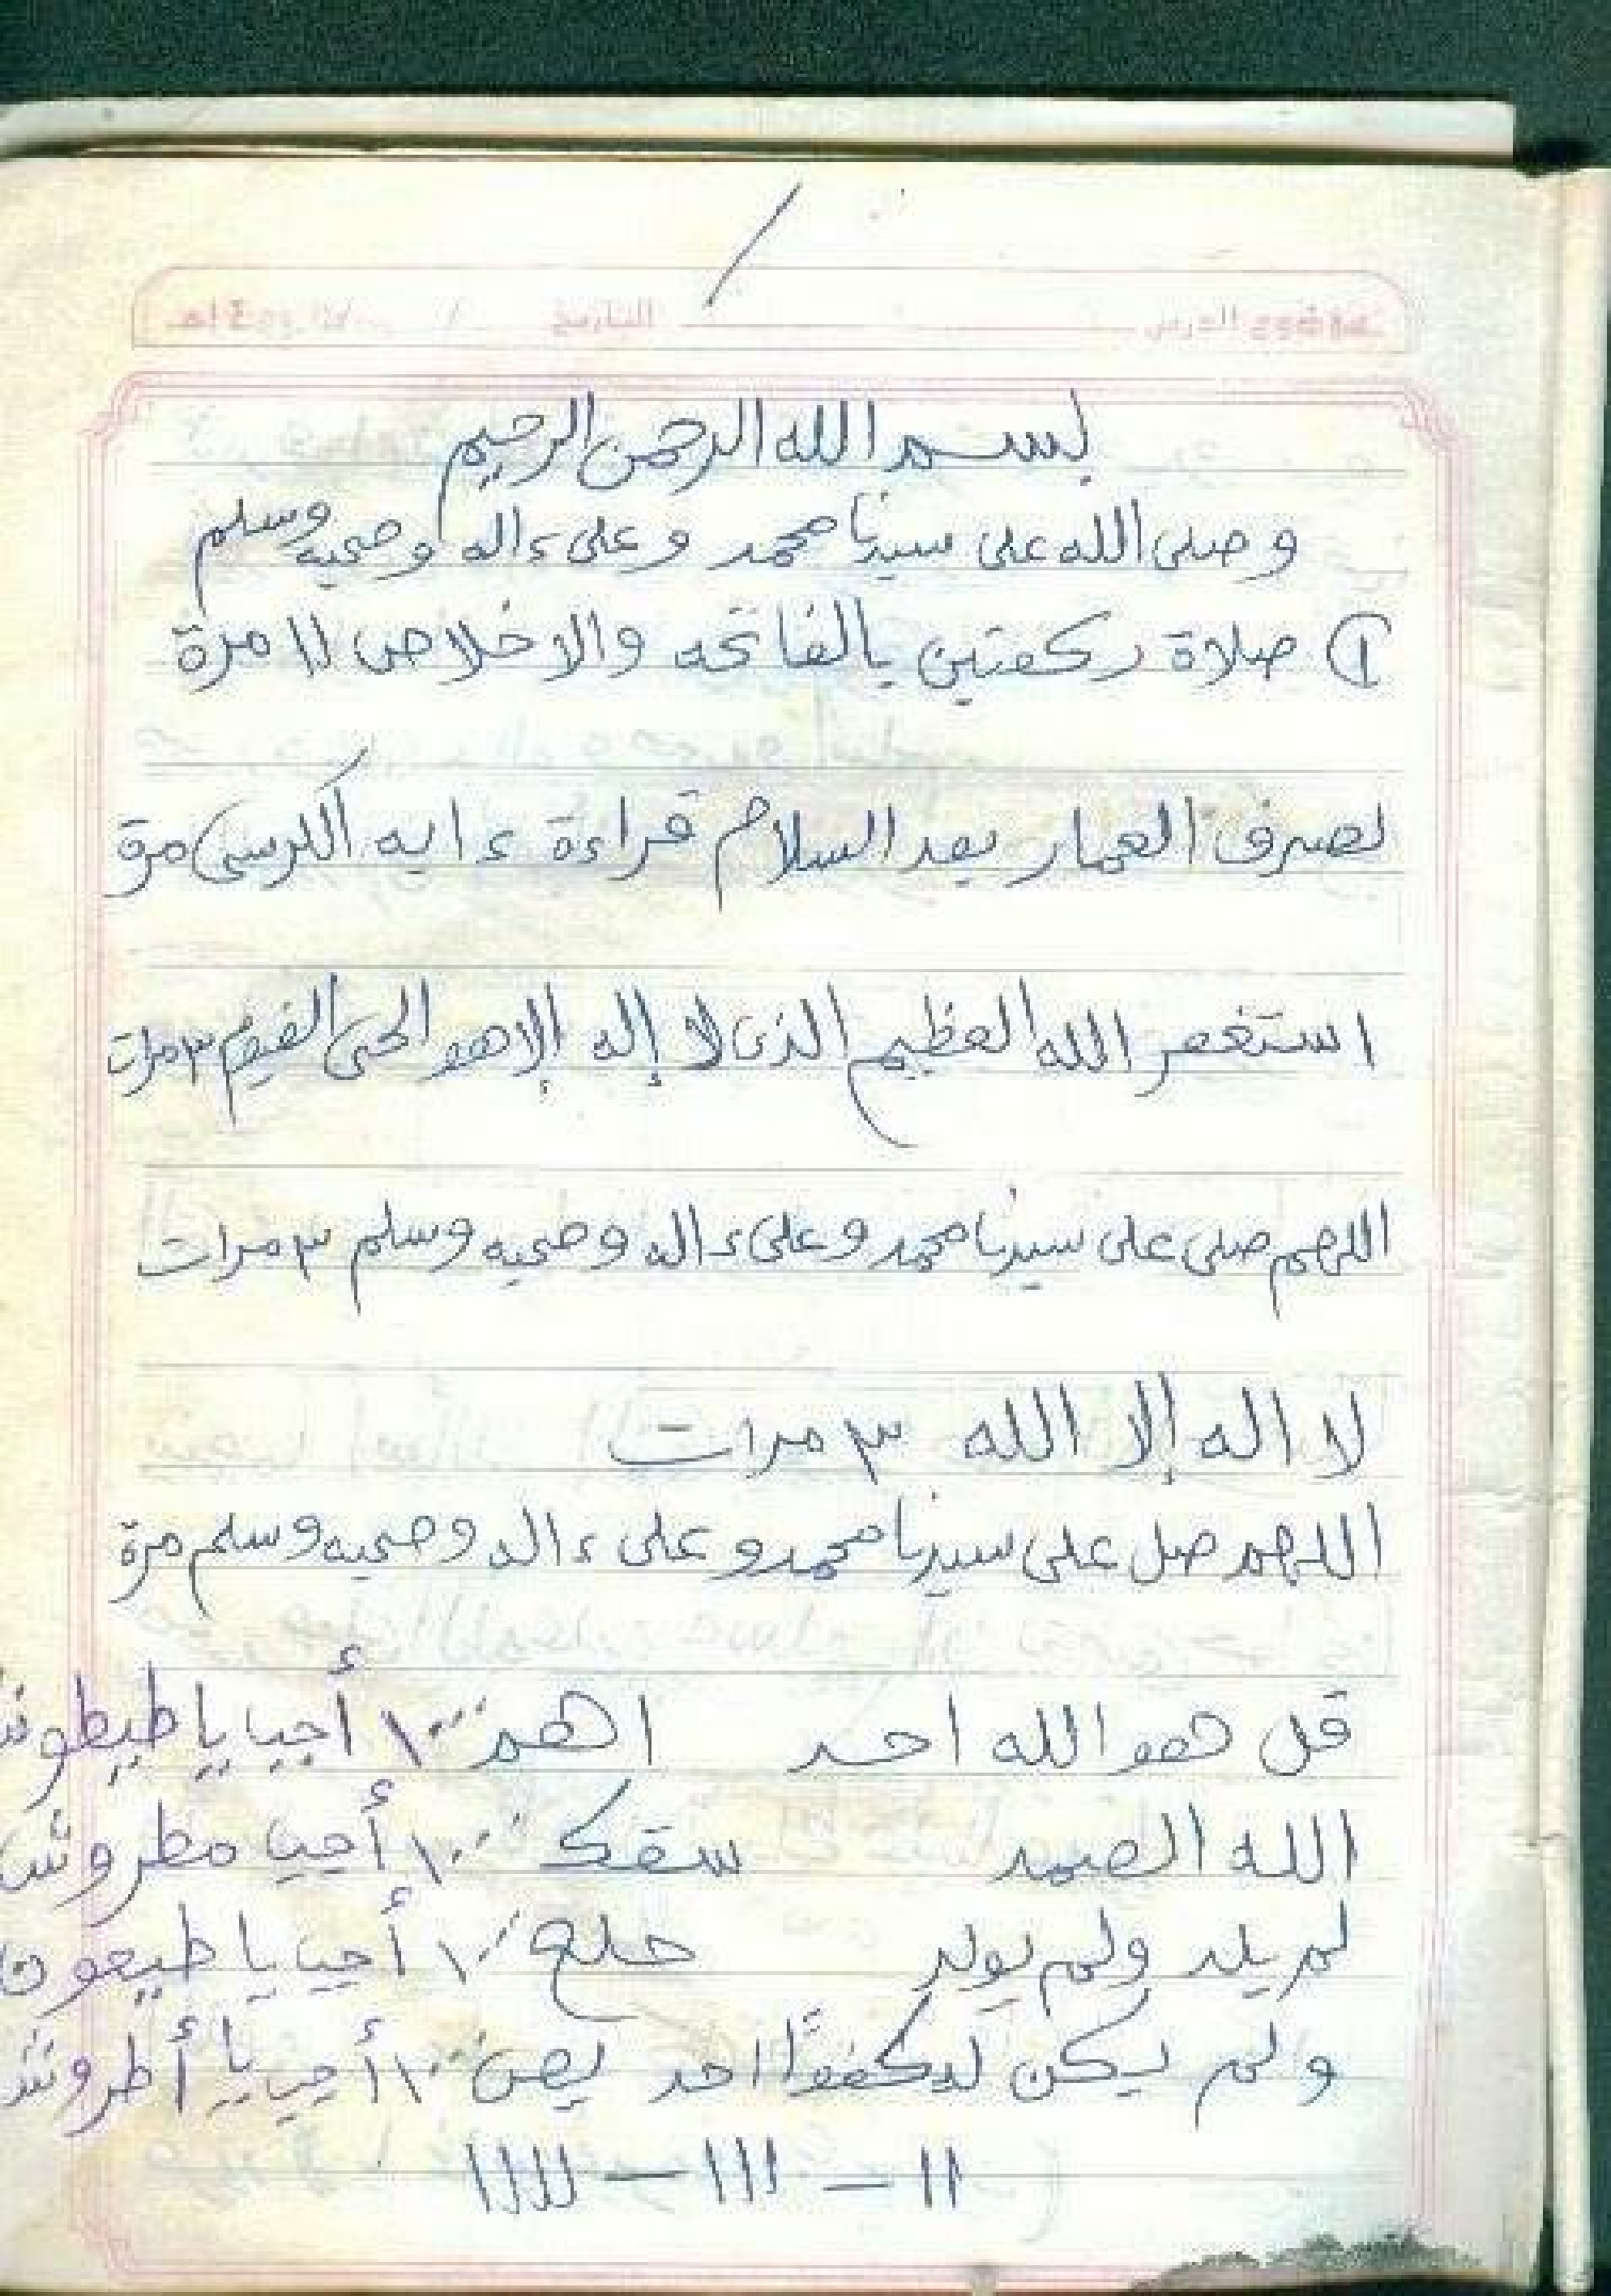 بسم الله الرحمن الرحيم
وصلى الله على سيدنا محمد وعلى ءاله وصحبه وسلم
① صلاة ركعتين بالفاتحه والاخلاص ١١ مرة
لصرف العمار بعد السلام قراءة ءايه الكرسى مرة
استغفر الله العظيم الذى لا إله إلا هو الحى القيوم ٣ مرات
اللهم صلى على سيدنا محمد وعلى ءاله وصحبه وسلم ٣ مرات
لا اله إلا الله ٣ مرات
اللهم صل على سيدنا محمد وعلى ءاله وصحبه وسلم مرة
قل هو الله احد اهم ١٠٠٠ أجب يا طيطوش
الله الصمد سقك ١٠٠٠ أجب مطروش
لم يلد ولم يولد حلع ١٠٠٠ أجب يا طيعون
ولم يكن له كفوًا احد يص ١٠٠٠ أجب يا أطروش
١١ – ١١١ – ١١١١١